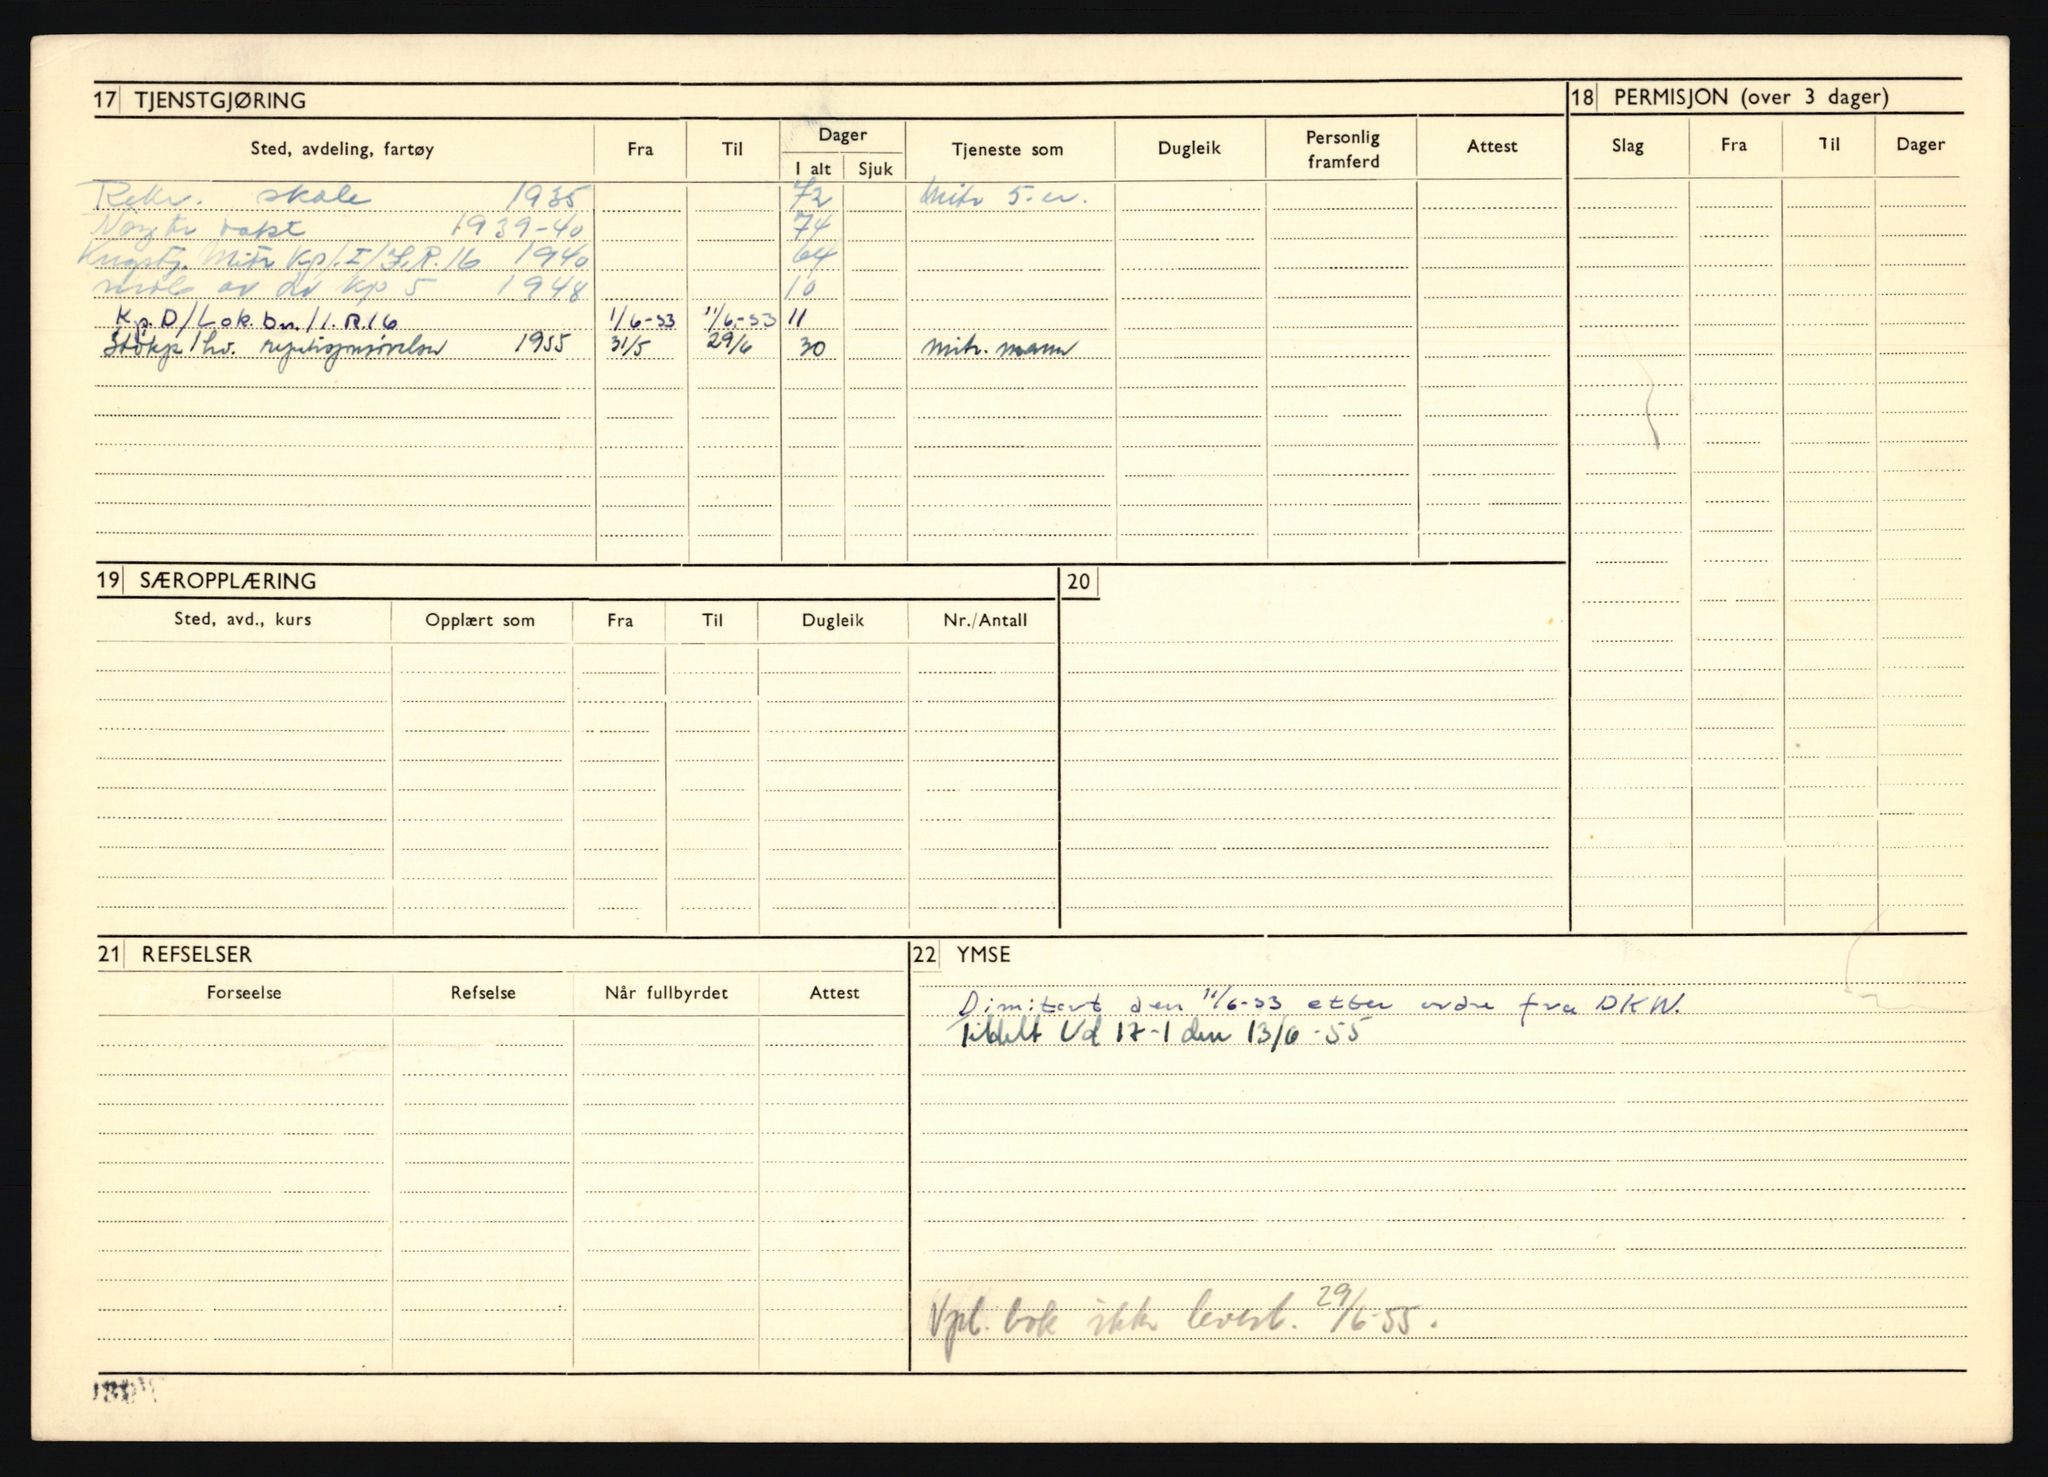 17 TJENSTGJØRING
18 PERMISJON (over 3 dager)
Sted, avdeling, fartøy Fra Til Dager Tjeneste som Dugleik Personlig framferd Attest Slag Fra Til Dager
I alt Sjuk
Rekr. skole 1935 72 Mitr 5. er.
Nøytr vakt 1939-40 74
Krigstj. Mitr Kp/.I/I.R.16 1940 64
av dv Kp 5 1948 10
Kp. D/Lok. bn./I.R.16 1/6-53 11/6-53 11
repetisjonsøvelse 1955 31/5 29/6 30 mitr. mann
19 SÆROPPLÆRING
20
Sted, avd., kurs Opplært som Fra Til Dugleik Nr./Antall
21 REFSELSER
22 YMSE
Forseelse Refselse Når fullbyrdet Attest
Dimitert den 11/6-53 etter ordre fra DKW.
Tildelt Vd 17-1 den 13/6-55
Vpl. bok ikke levert. 29/6-55.